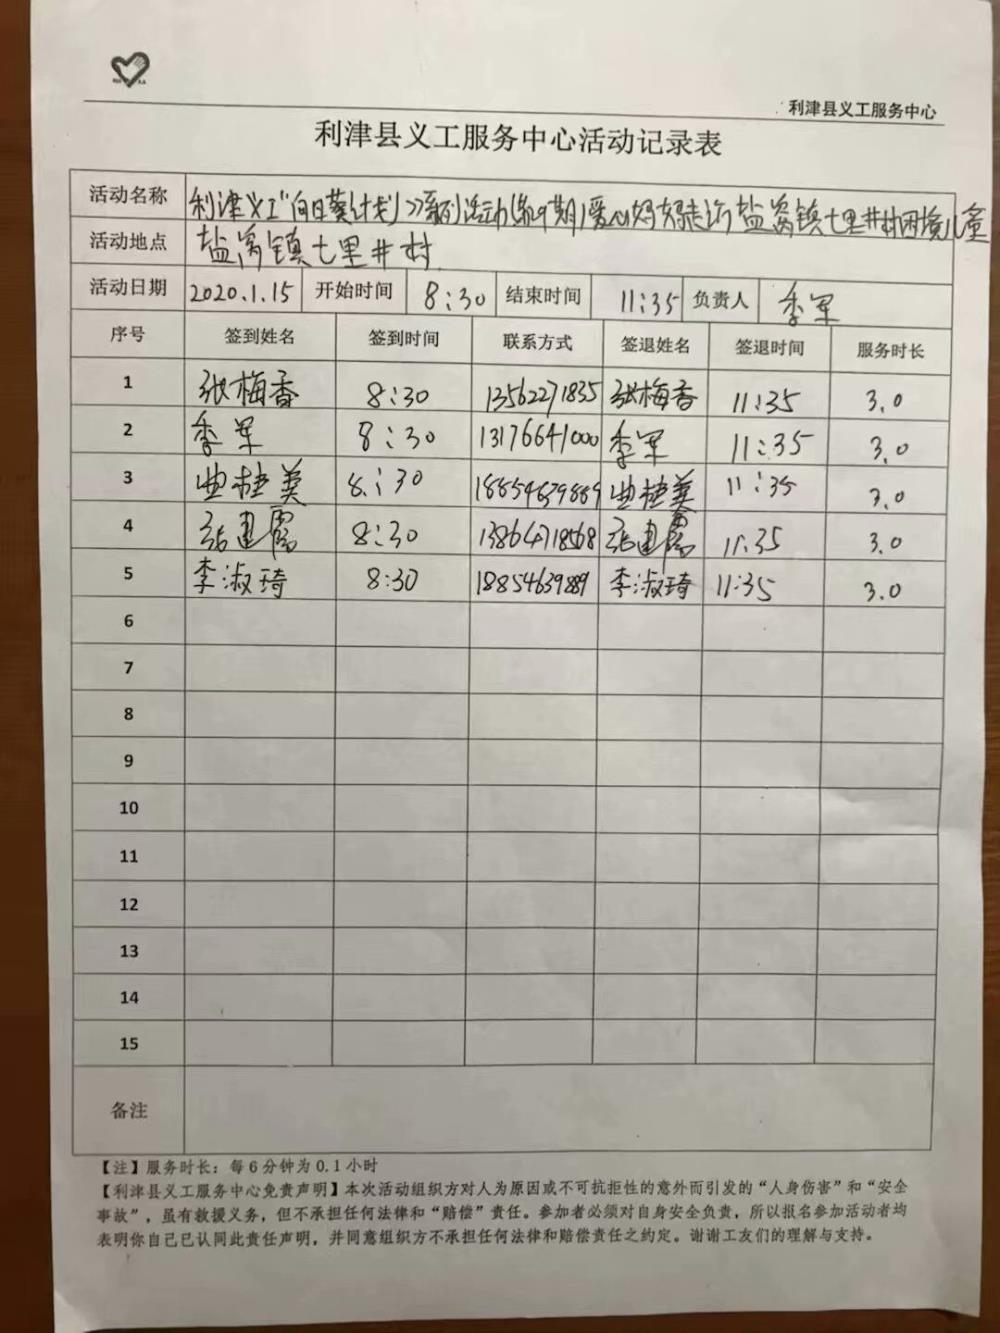 利津县义工服务中心
利津县义工服务中心活动记录表
活动名称 利津义工"向日葵计划》系列活动(第9期)爱心妈妈走访盐窝镇七里井村困境儿童
活动地点 盐窝镇七里井村
活动日期 2020.1.15 开始时间 8:30 结束时间 11:35 负责人 李军
序号 签到姓名 签到时间 联系方式 签退姓名 签退时间 服务时长
1 张梅香 8:30 13562271835 张梅香 11:35 3.0
2 李军 8:30 13176641000 李军 11:35 3.0
3 曲桂美 8:30 18854639889 曲桂美 11:35 3.0
4 张建霞 8:30 13864718568 张建霞 11:35 3.0
5 李淑琦 8:30 18854639889 李淑琦 11:35 3.0
6
7
8
9
10
11
12
13
14
15
备注
【注】服务时长：每6分钟为0.1小时
【利津县义工服务中心免责声明】本次活动组织方对人为原因或不可抗拒性的意外而引发的“人身伤害”和“安全
事故”，虽有救援义务，但不承担任何法律和“赔偿”责任。参加者必须对自身安全负责，所以报名参加活动者均
表明你自己已认同此责任声明，并同意组织方不承担任何法律和赔偿责任之约定。谢谢工友们的理解与支持。